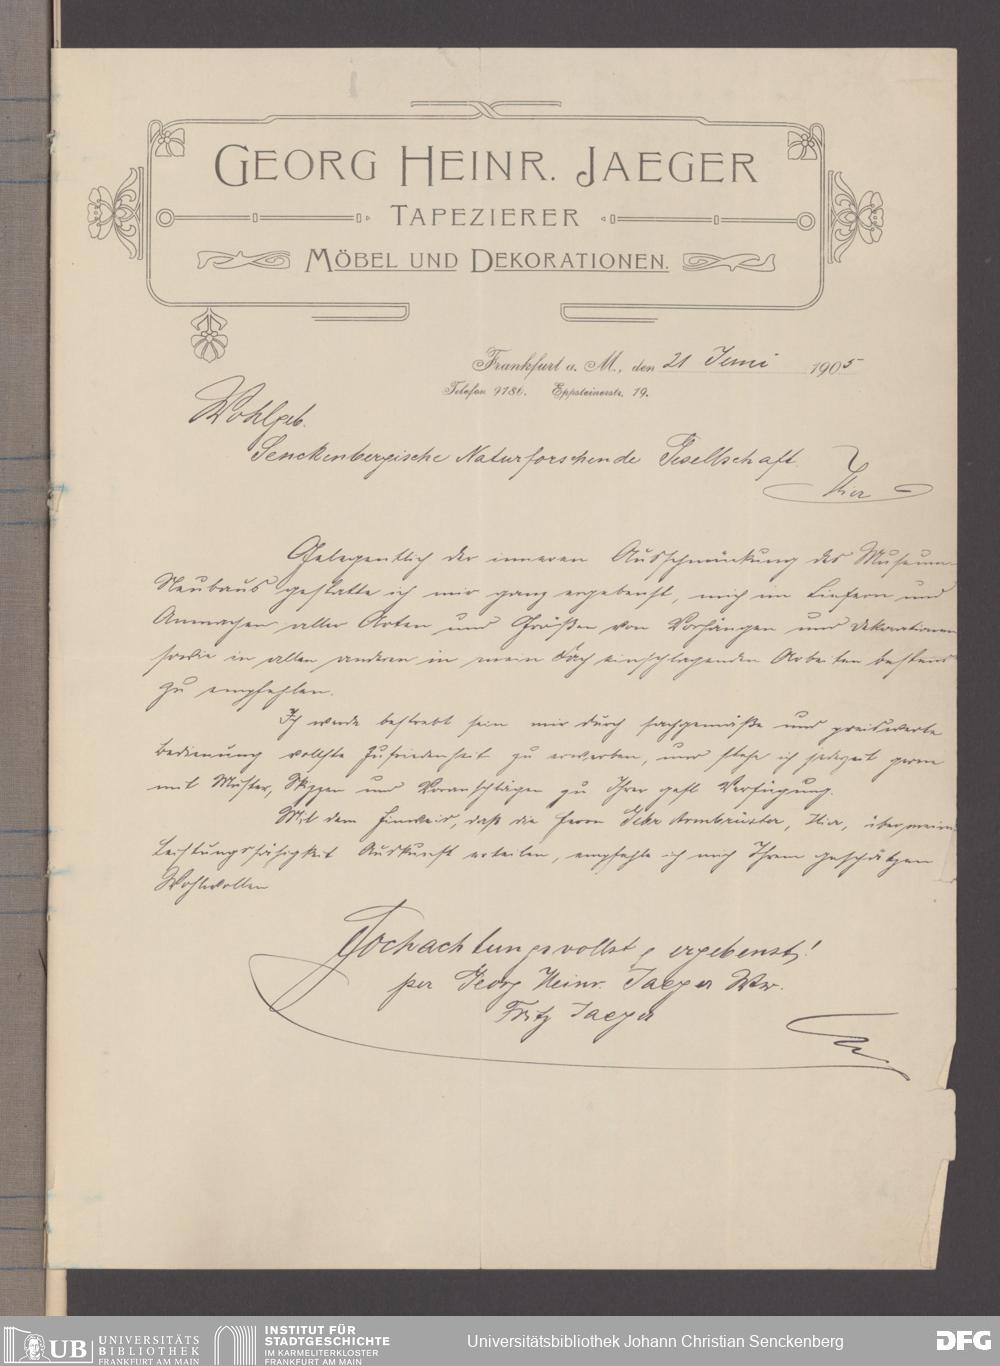 GEORG HEINR. JAEGER
TAPEZIERER
MÖBEL UND DEKORATIONEN.
Frankfurt a. M., den 21 Juni 1905
Telefon 9786. Eppsteinerstr. 19.
Wohlgeb.
Senckenbergische Naturforschende Gesellschaft
Hier
Gelegentlich der inneren Ausschmückung des Museum-
Neubaus gestatte ich mir ganz ergebenst, mich im Liefern und
Anmachen aller Arten und Größen von Vorhängen und Dekorationen
sowie in allen anderen in mein Fach einschlagenden Arbeiten bestens
zu empfehlen.
Ich werde bestrebt sein mir durch sachgemäße und preiswerte
Bedienung vollste Zufriedenheit zu erwerben, und stehe ich jederzeit gerne
mit Muster, Skizzen und Voranschlägen zu Ihrer gefl Verfügung.
Mit dem Hinweis, daß die Herrn Gebr Armbrüster, Hier, über meine
Leistungsfähigkeit Auskunft erteilen, empfehle ich mich Ihrem geschätzen
Wohlwollen
Hochachtungsvollst ergebenst!
per Georg Heinr. Jaeger Ww.
Fritz Jaeger
UB UNIVERSITÄTS
BIBLIOTHEK
FRANKFURT AM MAIN
INSTITUT FÜR
STADTGESCHICHTE
IM KARMELITERKLOSTER
FRANKFURT AM MAIN
Universitätsbibliothek Johann Christian Senckenberg
DFG